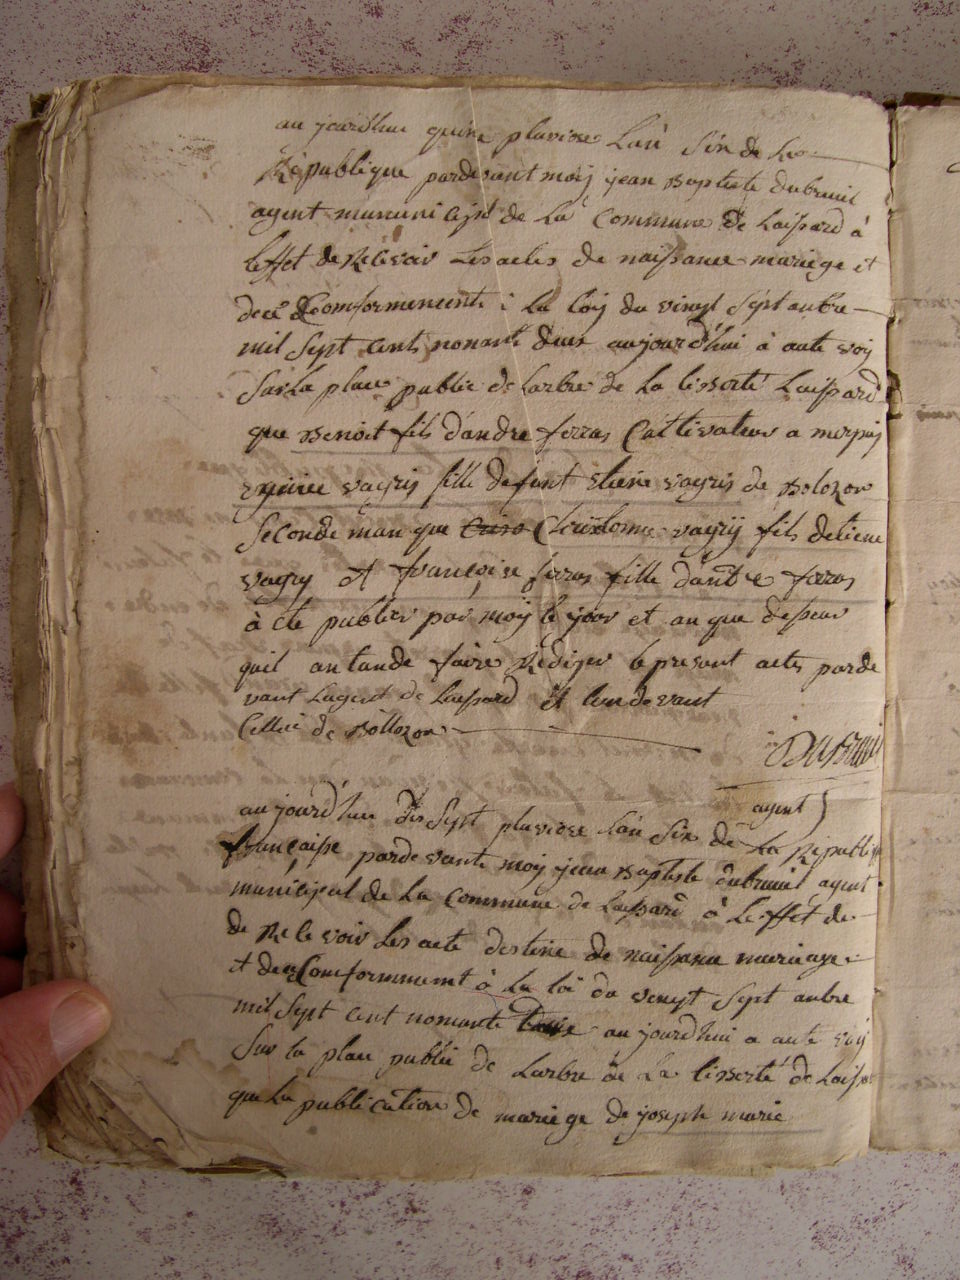 aujourdhui quinze pluviose Lan Six de la
Republique pardevant moij jean Baptiste dubreuil
agent municipal de La Commune de Laissard à
leffet de Relevoir Les actes de naissance mariege et
decé Comformement à la loy du vingt Sept
mil Sept cents nonante deux aujourd'hui à aute voij
Sur La place public de Larbre de la lisserté Laissard
que Benoit fils dandre ferras Cultivateur a
vagris fille defunt Etiene vagris de Bolozon
Seconde man que vagrij fils detiene
vagry et françoise ferras fille dandre ferras
à été publier par moij le jour et an que dessus
quil antande faire Rediger le present actes parde
vant Lagent de Laissard et lun devant
Cellui de Bollozon
Dubreuil
agent
aujourd'hui dis Sept pluviose Lan Six de La Republique
françaisse pardevante moij jean Baptiste dubreuil agent
municipal de La Commune de Laissard à Leffet de
de Relevoir Les acte destiné de naissance mariage
et decé Comformement à La loi du vingt Sept
mil Sept cent nonante aujourd'hui a aute voij
Sur la place public de Larbre de La lisserté de
que La publication de mariege de joseph marie